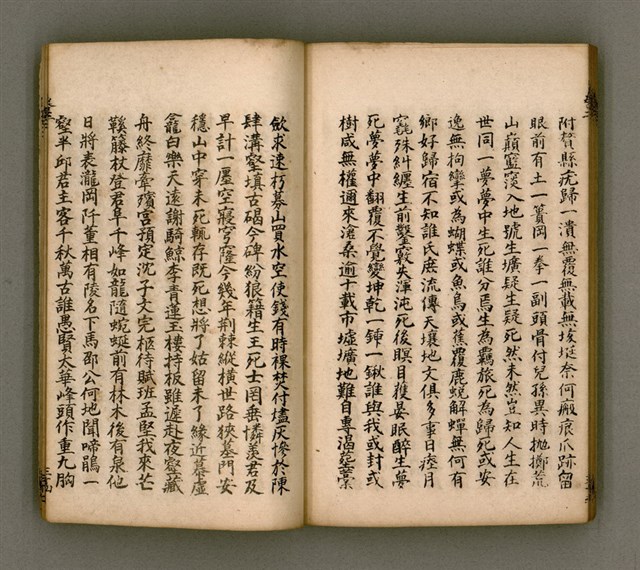 附贅縣疣歸一潰無覆無載無埃埏奈何瘢痕爪跡留
眼前有土一簣岡一拳一副頭骨付兒孫異時拋擲荒
山巔窀穸入地號生壙疑生疑死然未然豈知人生在
世同一夢夢中生死誰分焉生為羈旅死為歸死或安
逸無拘攣或為蝴蝶或魚鳥或蕉覆鹿蜺解蟬無何有
鄉好歸宿不知誰氏庶流傳天壤地文俱多事日瘞月
窆殊糾纏生前鑿竅失渾沌死後瞑目獲晏眠醉生夢
死夢夢中翻覆不覺變坤乾一鍾一鍬誰與我或封或
樹咸無權邇來滄桑逾十載市墟壙地難自專渴葬藁
斂求速朽募山買水空使錢有時裸焚付燼灰慘於陳
肆溝壑填古碣今碑紛狼籍生王死士罔垂憐羨君及
早計一廛空寢穹窿今幾年荊棘縱橫世路狹墓門安
穩山中穿未死軌存既死想將了姑留未了緣近募虛
龕白樂天遠謝騎鯨李青蓮玉樓持板雖遲赴夜壑藏
舟終靡牽殯宮預定沈子文完柩待賦班孟堅我來芒
鞵籐杖登君阜千峰如龍隨蜿蜒前有林木後有泉他
日將表瀧岡阡董相有陵名下馬邵公何地聞啼鵑一
壑半邱君主客千秋萬古誰愚賢太華峰頭作重九朐